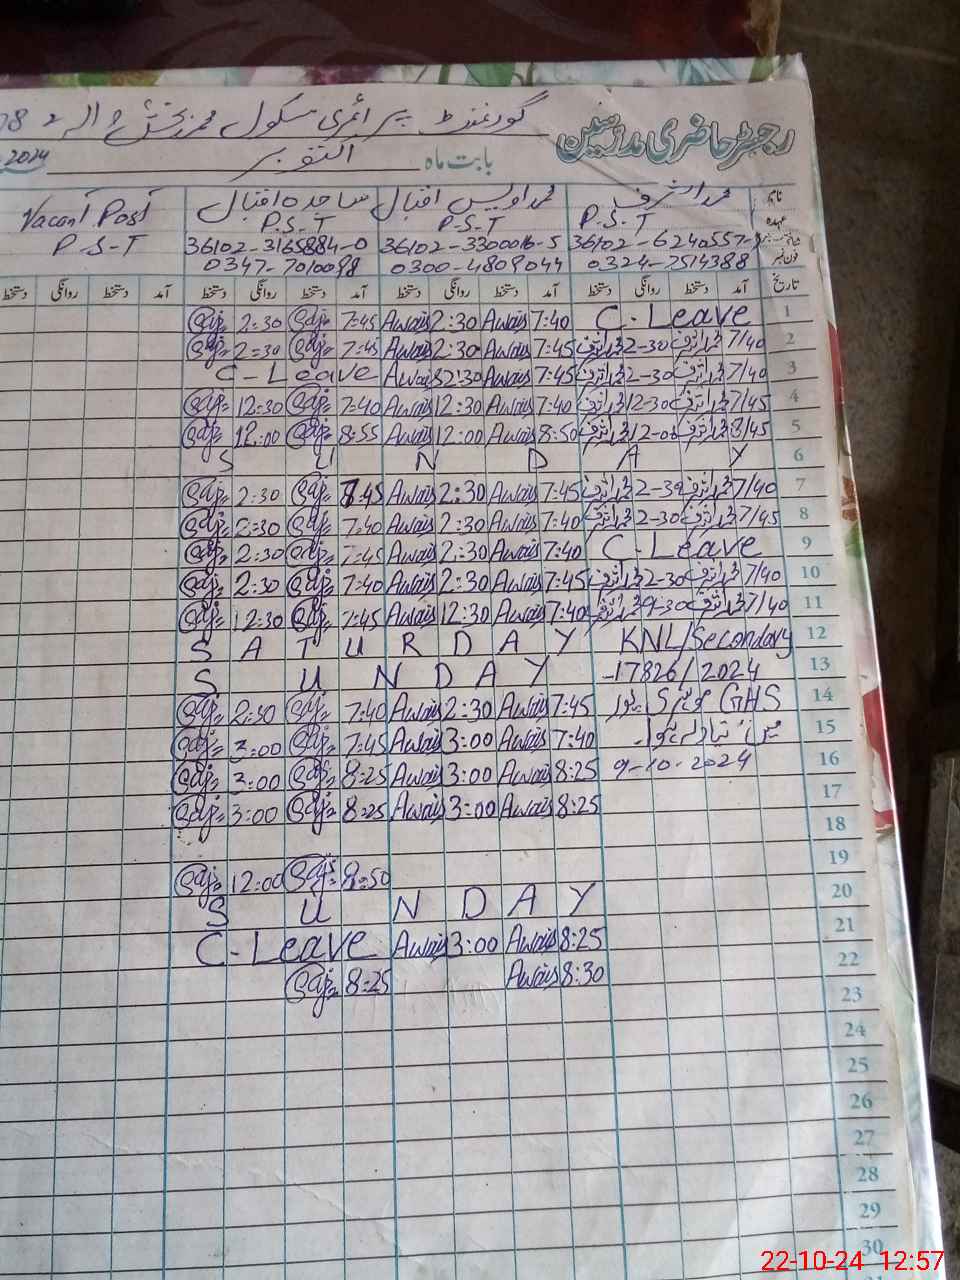 رجسٹر حاضری مدرسین
گورنمنٹ پرائمری سکول محمد بخش والہ
بابت ماہ اکتوبر 2024
نام محمد اشرف محمد اویس اقبال ساجدہ اقبال Vacant Post
عہدہ P.S.T P.S.T P.S.T P-S-T
36102-3300016-5 36102-3165884-0
فون نمبر 0324-7514388 0300-4809044 0347-7010098
تاریخ آمد دستخط روانگی دستخط آمد دستخط روانگی دستخط آمد دستخط روانگی دستخط آمد دستخط روانگی دستخط
1 C-Leave 7:40 Awais 2:30 Awais 7:45 Saj 2:30 Saj
2 7/40 محمد اشرف 2-30 محمد اشرف 7:45 Awais 2:30 Awais 7:45 Saj 2-30 Saj
3 7/40 محمد اشرف 2-30 محمد اشرف 7:45 Awais 2:30 Awais C-Leave
4 7/45 محمد اشرف 12-30 محمد اشرف 7:40 Awais 12:30 Awais 7:40 Saj 12:30 Saj
5 8/45 محمد اشرف 12-00 محمد اشرف 8:50 Awais 12:00 Awais 8:55 Saj 12:00 Saj
6 SUNDAY
7 7/40 محمد اشرف 2-30 محمد اشرف 7:45 Awais 2:30 Awais 7:45 Saj 2:30 Saj
8 7/45 محمد اشرف 2-30 محمد اشرف 7:40 Awais 2:30 Awais 7:40 Saj 2:30 Saj
9 C-Leave 7:40 Awais 2:30 Awais 7:45 Saj 2:30 Saj
10 7/40 محمد اشرف 2-30 محمد اشرف 7:45 Awais 2:30 Awais 7:40 Saj 2:30 Saj
11 7/40 محمد اشرف محمد اشرف 7:40 Awais 12:30 Awais 7:45 Saj 12:30 Saj
12 KNL/Secondary SATURDAY
13 -17826/2024 SUNDAY
14 GHS 7:45 Awais 2:30 Awais 7:40 Saj 2:30 Saj
15 میں تبادلہ ہوا۔ 7:40 Awais 3:00 Awais 7:45 Saj 3:00 Saj
16 9-10-2024 8:25 Awais 3:00 Awais 8:25 Saj 3:00 Saj
17 8:25 Awais 3:00 Awais 8:25 Saj 3:00 Saj
18
19 8:50 Saj 12:00 Saj
20 SUNDAY
21 8:25 Awais 3:00 Awais C-Leave
22 8:30 Awais 8:25 Saj
23
24
25
26
27
28
29
30
22-10-24 12:57